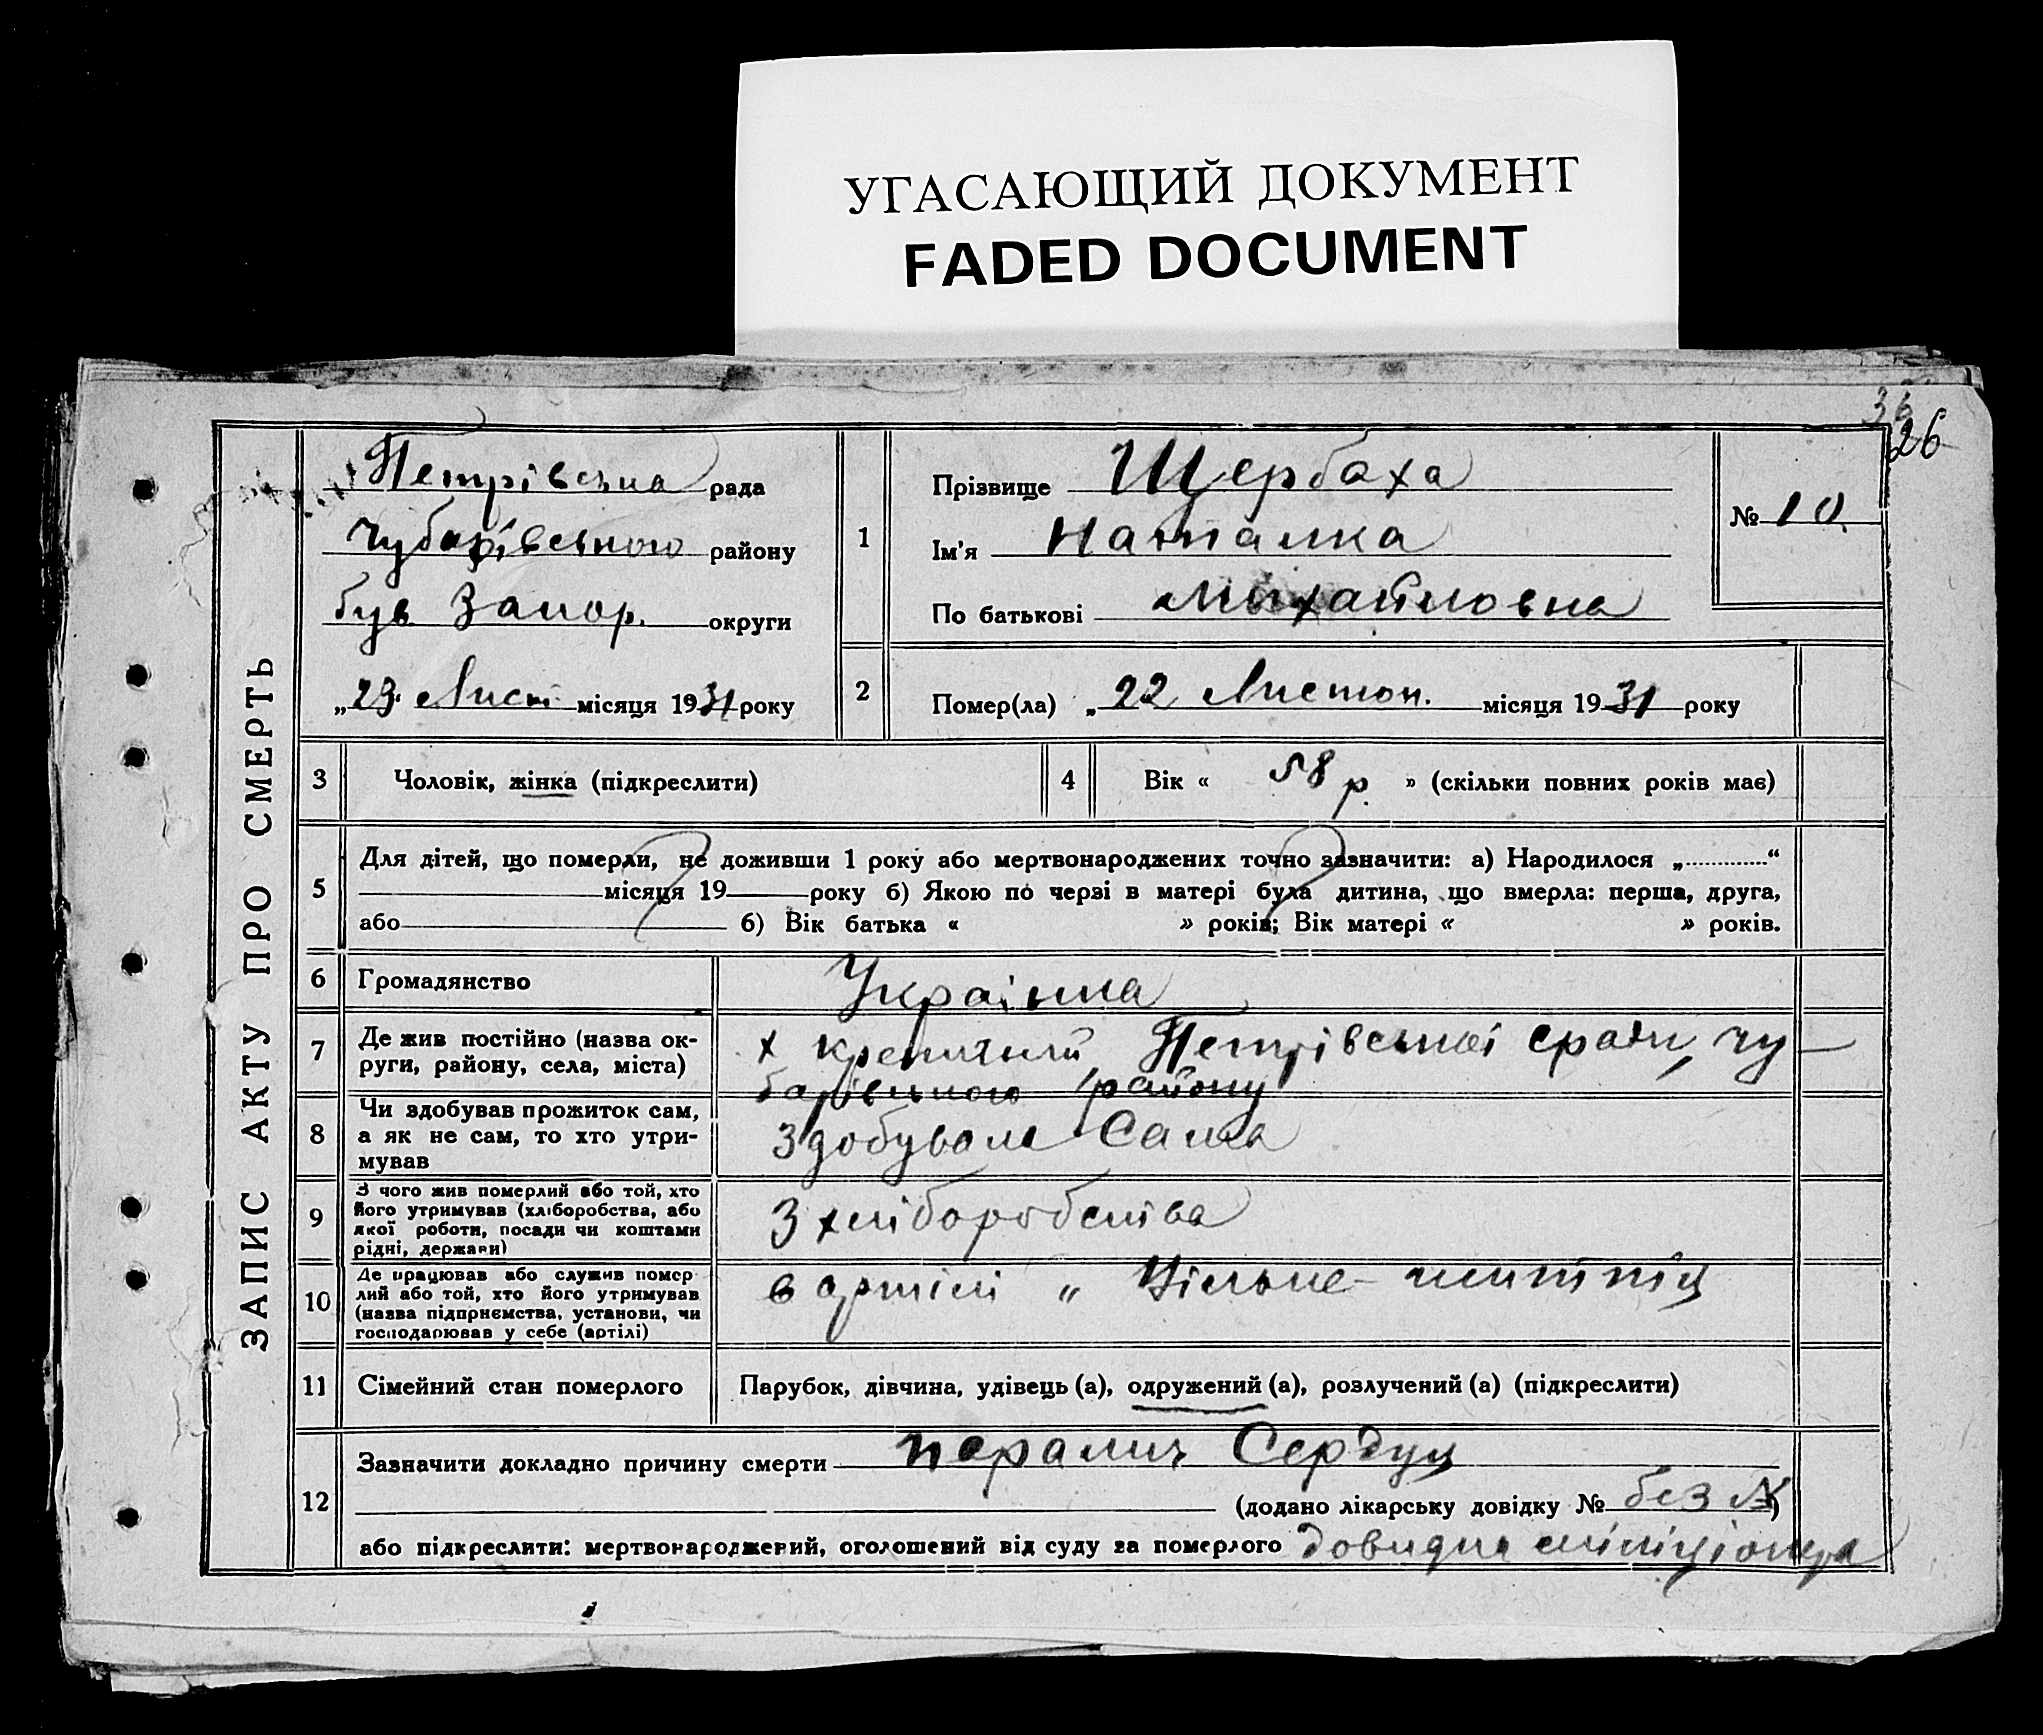 УГАСАЮЩИЙ ДОКУМЕНТ
FADED DOCUMENT
36
26
ЗАПИС АКТУ ПРО СМЕРТЬ
Петрівська рада
Чубарівського району
був Запор. округи
„23. Лист місяця 1931 року
1
Прізвище Щербаха
Ім'я Наталка
По батькові Михайловна
№ 10.
2
Помер(ла) „ 22 Листоп. місяця 1931 року
3 Чоловік, жінка (підкреслити)
4 Вік « 58 р. » (скільки повних років має)
5
Для дітей, що померли, не доживши 1 року або мертвонароджених точно зазначити: а) Народилося „.............“
місяця 19 року б) Якою по черзі в матері була дитина, що вмерла: перша, друга,
або б) Вік батька « » років; Вік матері « » років.
6 Громадянство Українка
7 Де жив постійно (назва ок-
руги, району, села, міста)
х Петрівської сради, Чу-
барівського району
8 Чи здобував прожиток сам,
а як не сам, то хто утри-
мував
Здобувала Сама
9 З чого жив померлий або той, хто
його утримував (хліборобства, або
якої роботи, посади чи коштами
рідні, держави)
З хліборобства
10 Де працював або служив помер-
лий або той, хто його утримував
(назва підприємства, установи, чи
господарював у себе (артілі)
в артілі „
11 Сімейний стан померлого Парубок, дівчина, удівець (а), одружений (а), розлучений (а) (підкреслити)
12
Зазначити докладно причину смерти паралич Сердця
(додано лікарську довідку № без №)
або підкреслити: мертвонароджений, оголошений від суду за померлого довидка міліціонера